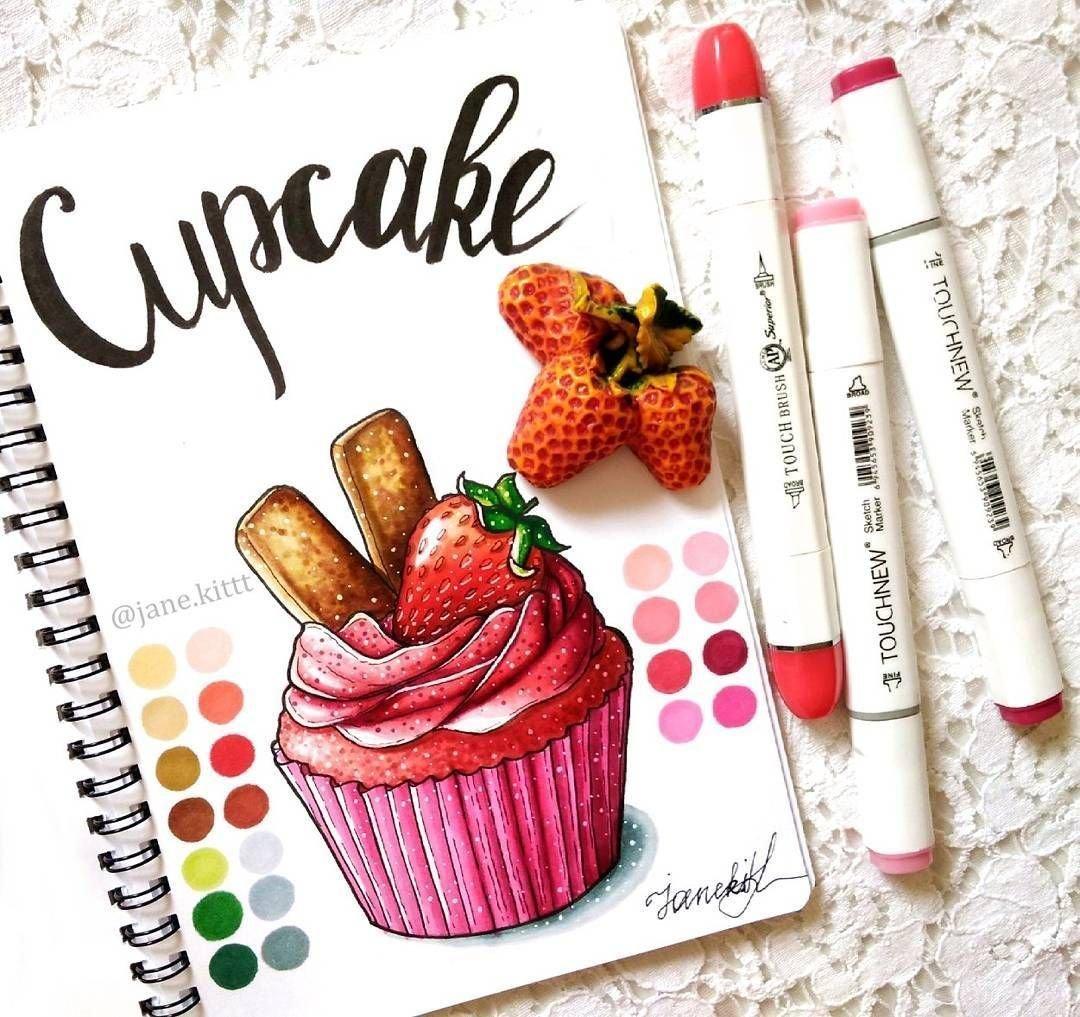 Cupcake
@jane.kittt
janekitt
TOUCH BRUSH
Superior
BRUSH
BROAD
TOUCHNEW® Sketch
Marker
BROAD
FINE
6945653909239
TOUCHNEW® Sketch
Marker